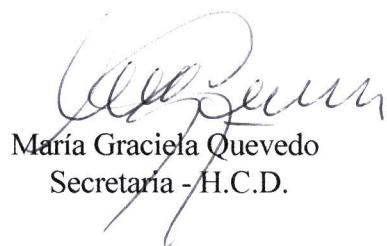 María Graciela Quevedo
Secretaria - H.C.D.